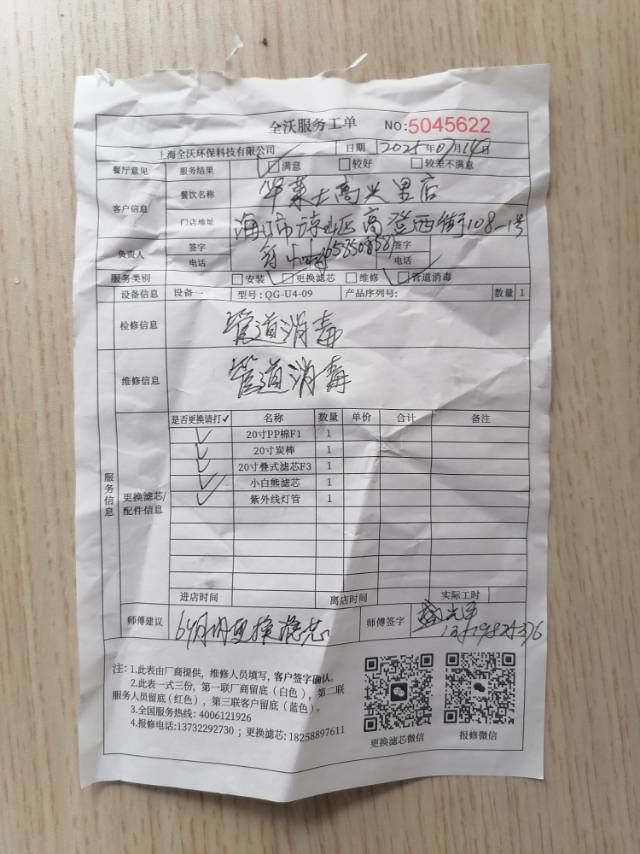 全沃服务工单 NO:5045622
上海全沃环保科技有限公司 日期 2025年01月14日
餐厅意见 服务结果 满意 较好 较差不满意
客户信息 餐饮名称 华莱士高兴里店
门店地址 高登西街108-1号
负责人 签字 签字
电话 电话
服务类别 安装 更换滤芯 维修 管道消毒
设备信息 设备一 型号: QG-U4-09 产品序列号: 数量 1
检修信息 管道消毒
维修信息 管道消毒
服务信息 更换滤芯/配件信息
是否更换请打✓ 名称 数量 单价 合计 备注
✓ 20寸PP棉F1 1
✓ 20寸炭棒 1
✓ 20寸叠式滤芯F3 1
✓ 小白熊滤芯 1
✓ 紫外线灯管 1
进店时间 离店时间 实际工时
师傅建议 6个月内更换滤芯 师傅签字
注: 1.此表由厂商提供，维修人员填写, 客户签字确认。
2.此表一式三份，第一联厂商留底（白色），第二联
服务人员留底(红色)，第三联客户留底（蓝色）。
3.全国服务热线: 4006121926
4.报修电话:13732292730 ; 更换滤芯: 18258897611
更换滤芯微信 报修微信